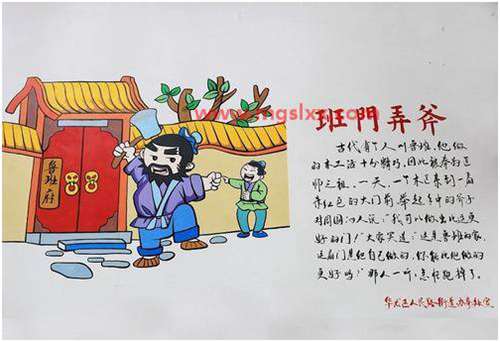 鲁班府
班門弄斧
古代有个人叫鲁班,他做
的木工活十分精巧,因此被奉为匠
师之祖。一天,一个木匠来到一扇
朱红色的大门前,举起手中的斧子
对周围的人说:"我可以做出比这更
好的门!"大家笑道:"这是鲁班的家,
这扇门是他自己做的,你能比他做的
更好吗?"那人一听,急忙跑掉了。
华龙区人民路街道办事处宣